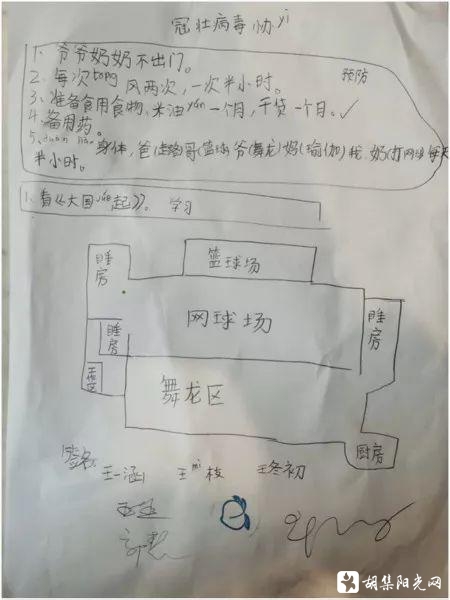 冠壮病毒协yì
1、爷爷奶奶不出门。
2、每次tōng风两次，一次半小时。
预防
3、准备食用食物、米油yán一个月，干货一个月。✓
4、备用药。
5、duàn liàn身体，爸 哥(篮球)爷(舞龙)妈(瑜伽)我、奶(打网球)每天
半小时。
1、看《大国 起》。 学习
睡房
篮球场
网球场
睡房
睡房
舞龙区
厨房
签名
王一涵
王 枝
王冬初
胡集阳光网